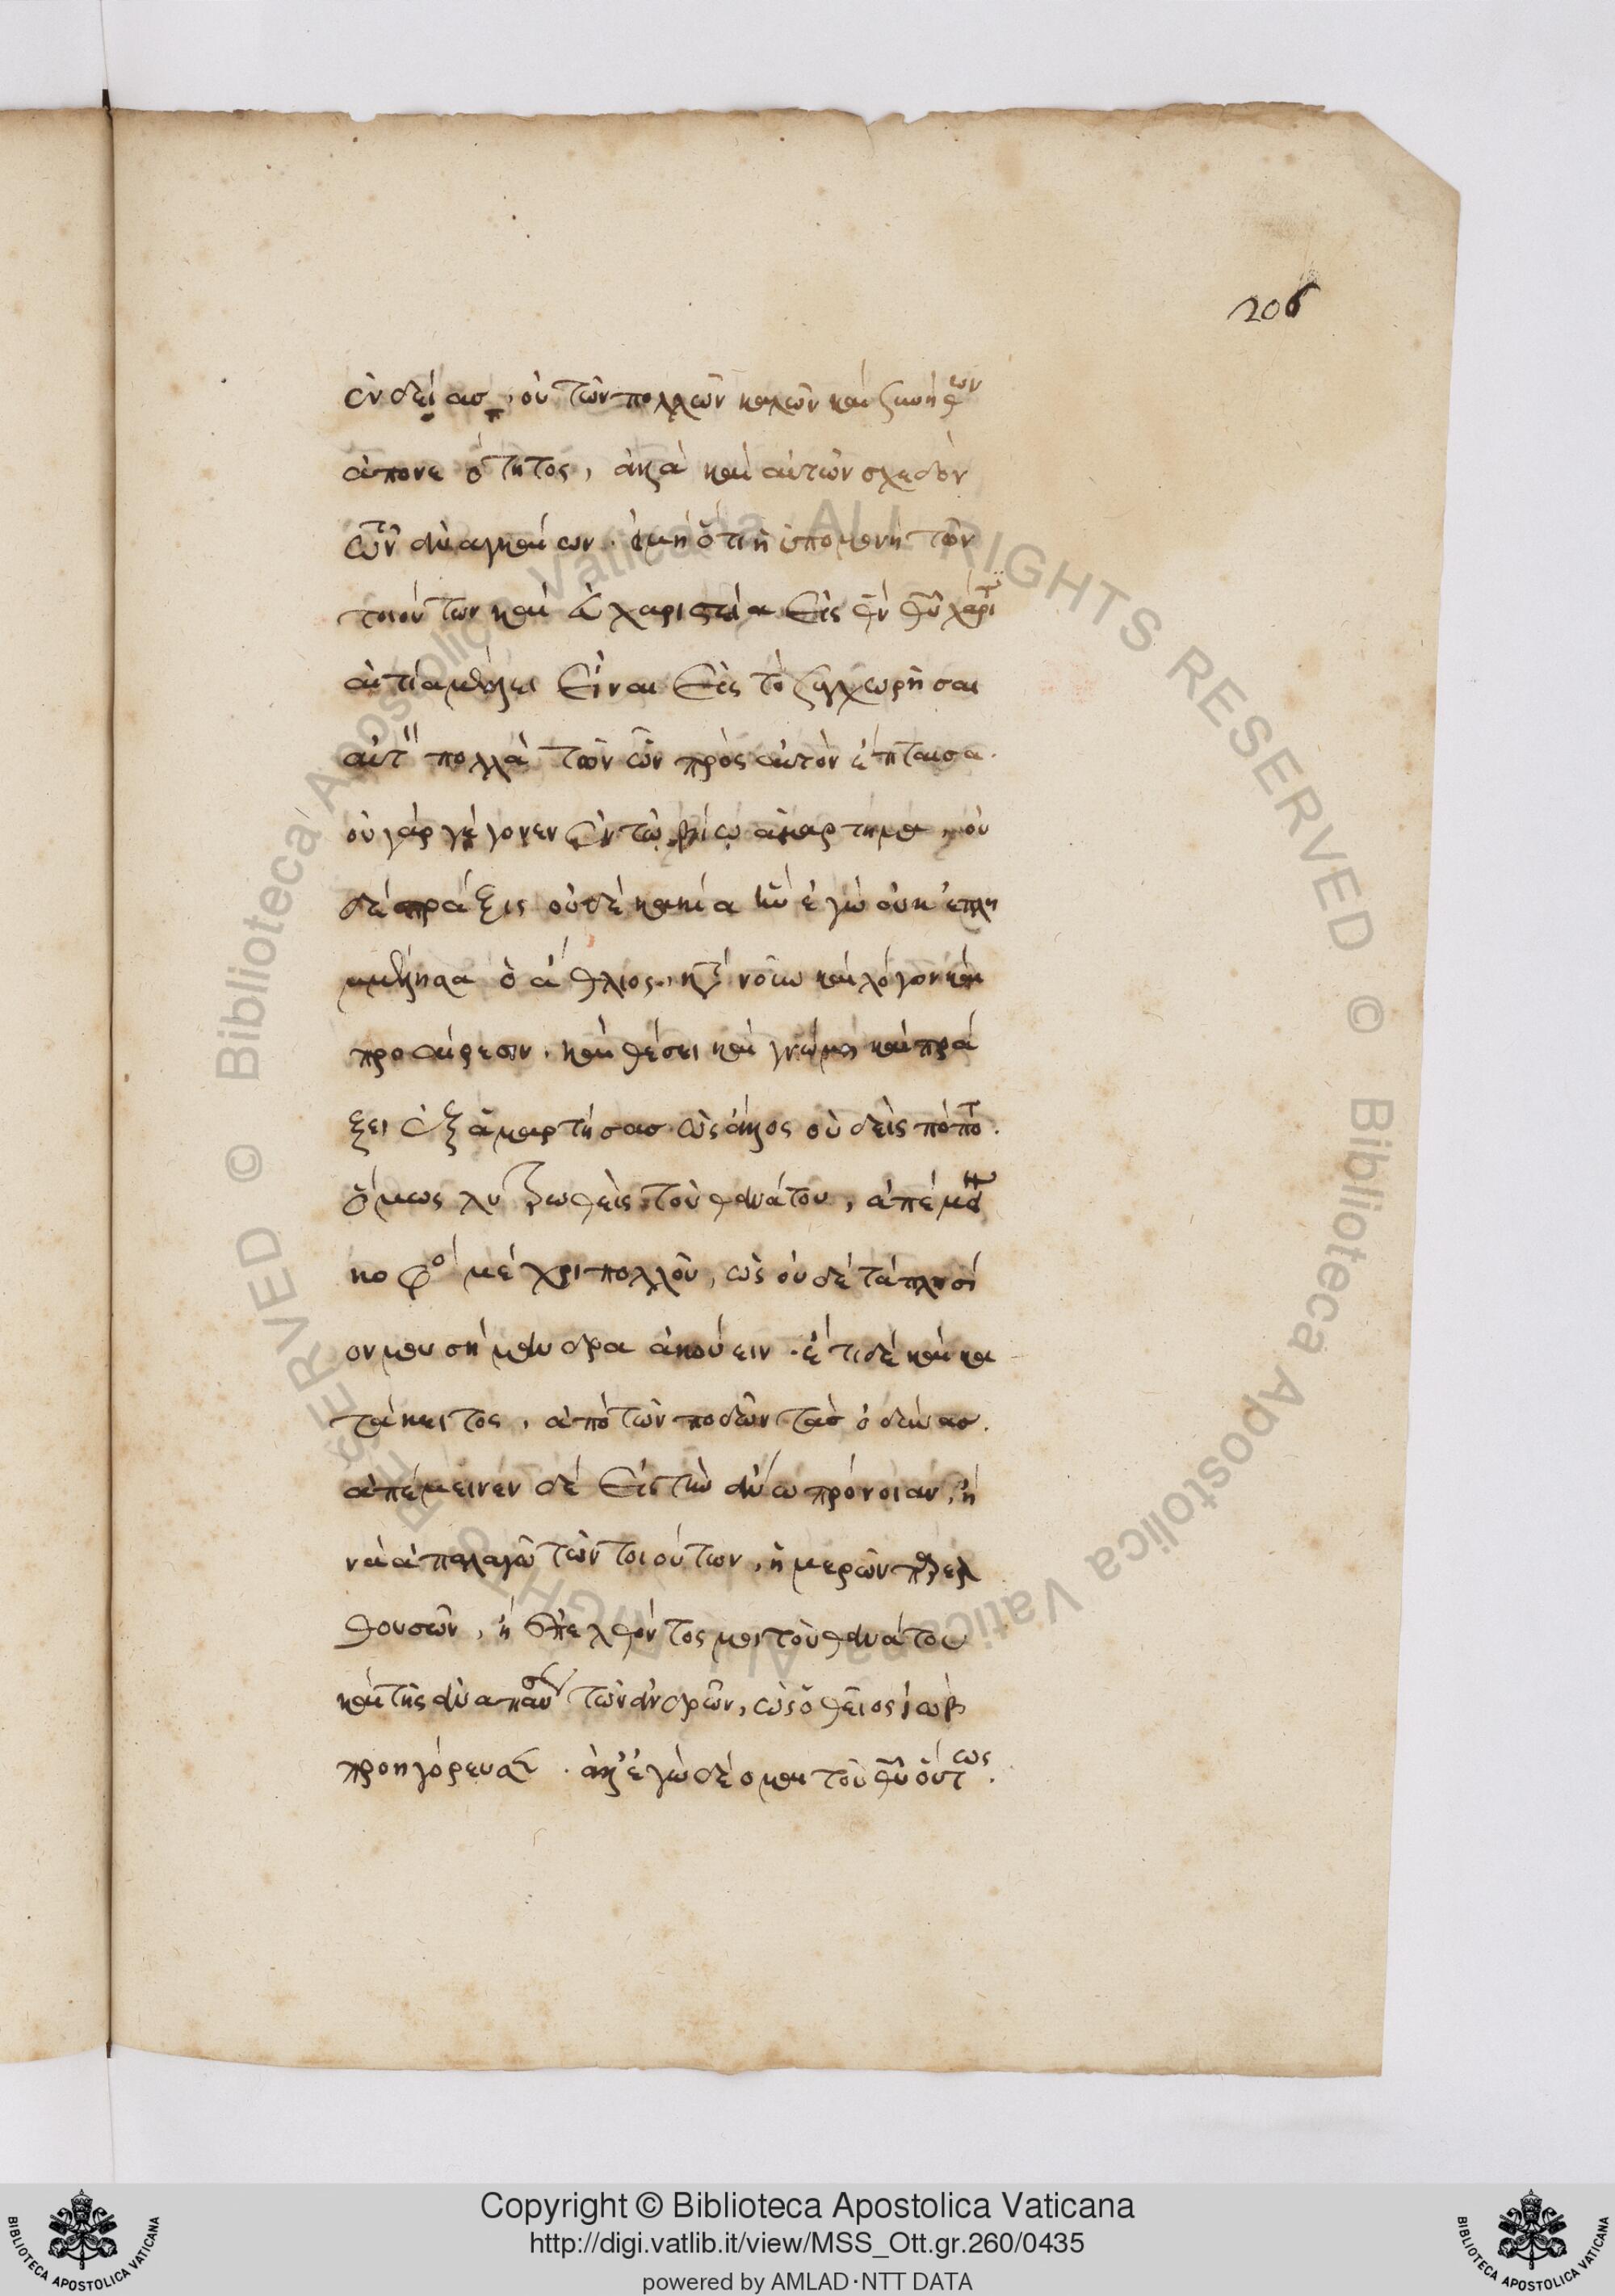 206
ἐνδείας, οὐ τῶν πολλῶν καλῶν καὶ
ἀπονεότητος, ἀλλὰ καὶ αὐτῶν σχεδὸν
τῶν ἀναγκαίων. ὅτι ἡ ὑπομονὴ τῶν
τοιούτων καὶ εὐχαριστία εἰς θν θῦ χάριτι
αἰτία μέλλει εἶναι εἰς τὸ συγχωρῆσαι
αὐτ πολλὰ τῶν ὧν πρὸς αὐτὸν ἔπταισα.
οὐ γὰρ γέγονεν ἐν τῷ βίῳ ἁμάρτημα, οὐ
δὲ πρᾶξις οὐδὲ κακία ἣν ἐγὼ οὐκ ἐπλη
μμέλησα ὁ ἄθλιος, καὶ λόγον καὶ
προαίρεσιν. καὶ θέσει καὶ γνώμῃ καὶ πρά
ξει ἐξαμαρτήσας ὡς ἄλλος οὐδεὶς πόποτ.
ὅμως λυτρωθεὶς τοῦ θανάτου, ἀπέμεινα
κοφὸ μέχρι πολλοῦ, ὡς οὐδὲ τὰ πλησί
ον μου σήμανδρα ἀκούειν. ἔτι δὲ καὶ κα
τάκειτος, ἀπὸ τῶν ποδῶν τὰς ὀδύνας.
ἀπέμεινεν δὲ εἰς τὴν ἄνω πρόνοιαν, ἢ
νὰ ἀπαλαγῶ τῶν τοιούτων, ἡμερῶν παρελ
θουσῶν, ἢ ἐπελθόντος μοι τοῦ θανάτου
καὶ τῆς ἀναπαύσ τῶν ἀνδρῶν, ὡς ὁ θεῖος ἰὼβ
προηγόρευσεν. ἀλλ' ἐγὼ δέομαι τοῦ θῦ οὕτως.
Copyright © Biblioteca Apostolica Vaticana
http://digi.vatlib.it/view/MSS_Ott.gr.260/0435
powered by AMLAD·NTT DATA
BIBLIOTECA APOSTOLICA VATICANA
BIBLIOTECA APOSTOLICA VATICANA
© Biblioteca Apostolica Vaticana ALL RIGHTS RESERVED © Biblioteca Apostolica Vaticana ALL RIGHTS RESERVED